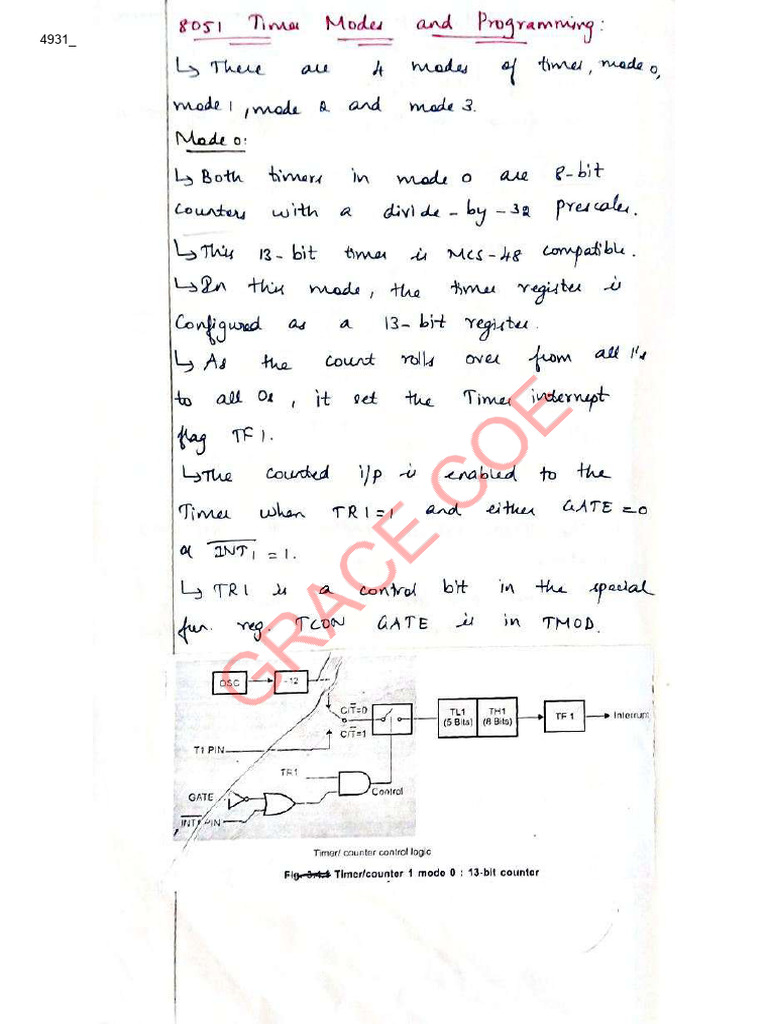 8051 Timer Modes and Programming:
4931_
↳ There are 4 modes of timer, mode 0,
mode 1, mode 2 and mode 3.
Mode 0:
↳ Both timers in mode 0 are 8-bit
counters with a divide-by-32 prescaler.
↳ This 13-bit timer is MCS-48 compatible.
↳ In this mode, the timer register is
configured as a 13-bit register.
↳ As the count rolls over from all 1's
to all 0s, it set the Timer interrupt
flag TF1.
↳ The counted i/p is enabled to the
Timer when TR1=1 and either GATE=0
or I̅N̅T̅1̅ = 1.
↳ TR1 is a control bit in the special
fun. reg. TCON GATE is in TMOD.
GRACE COE
OSC
÷12
C/T̅=0
C/T̅=1
T1 PIN
TL1
(5 Bits)
TH1
(8 Bits)
TF1
Interrupt
TR1
GATE
Control
I̅N̅T̅1̅ PIN
Timer/ counter control logic
Fig. 3.4.4 Timer/counter 1 mode 0 : 13-bit counter